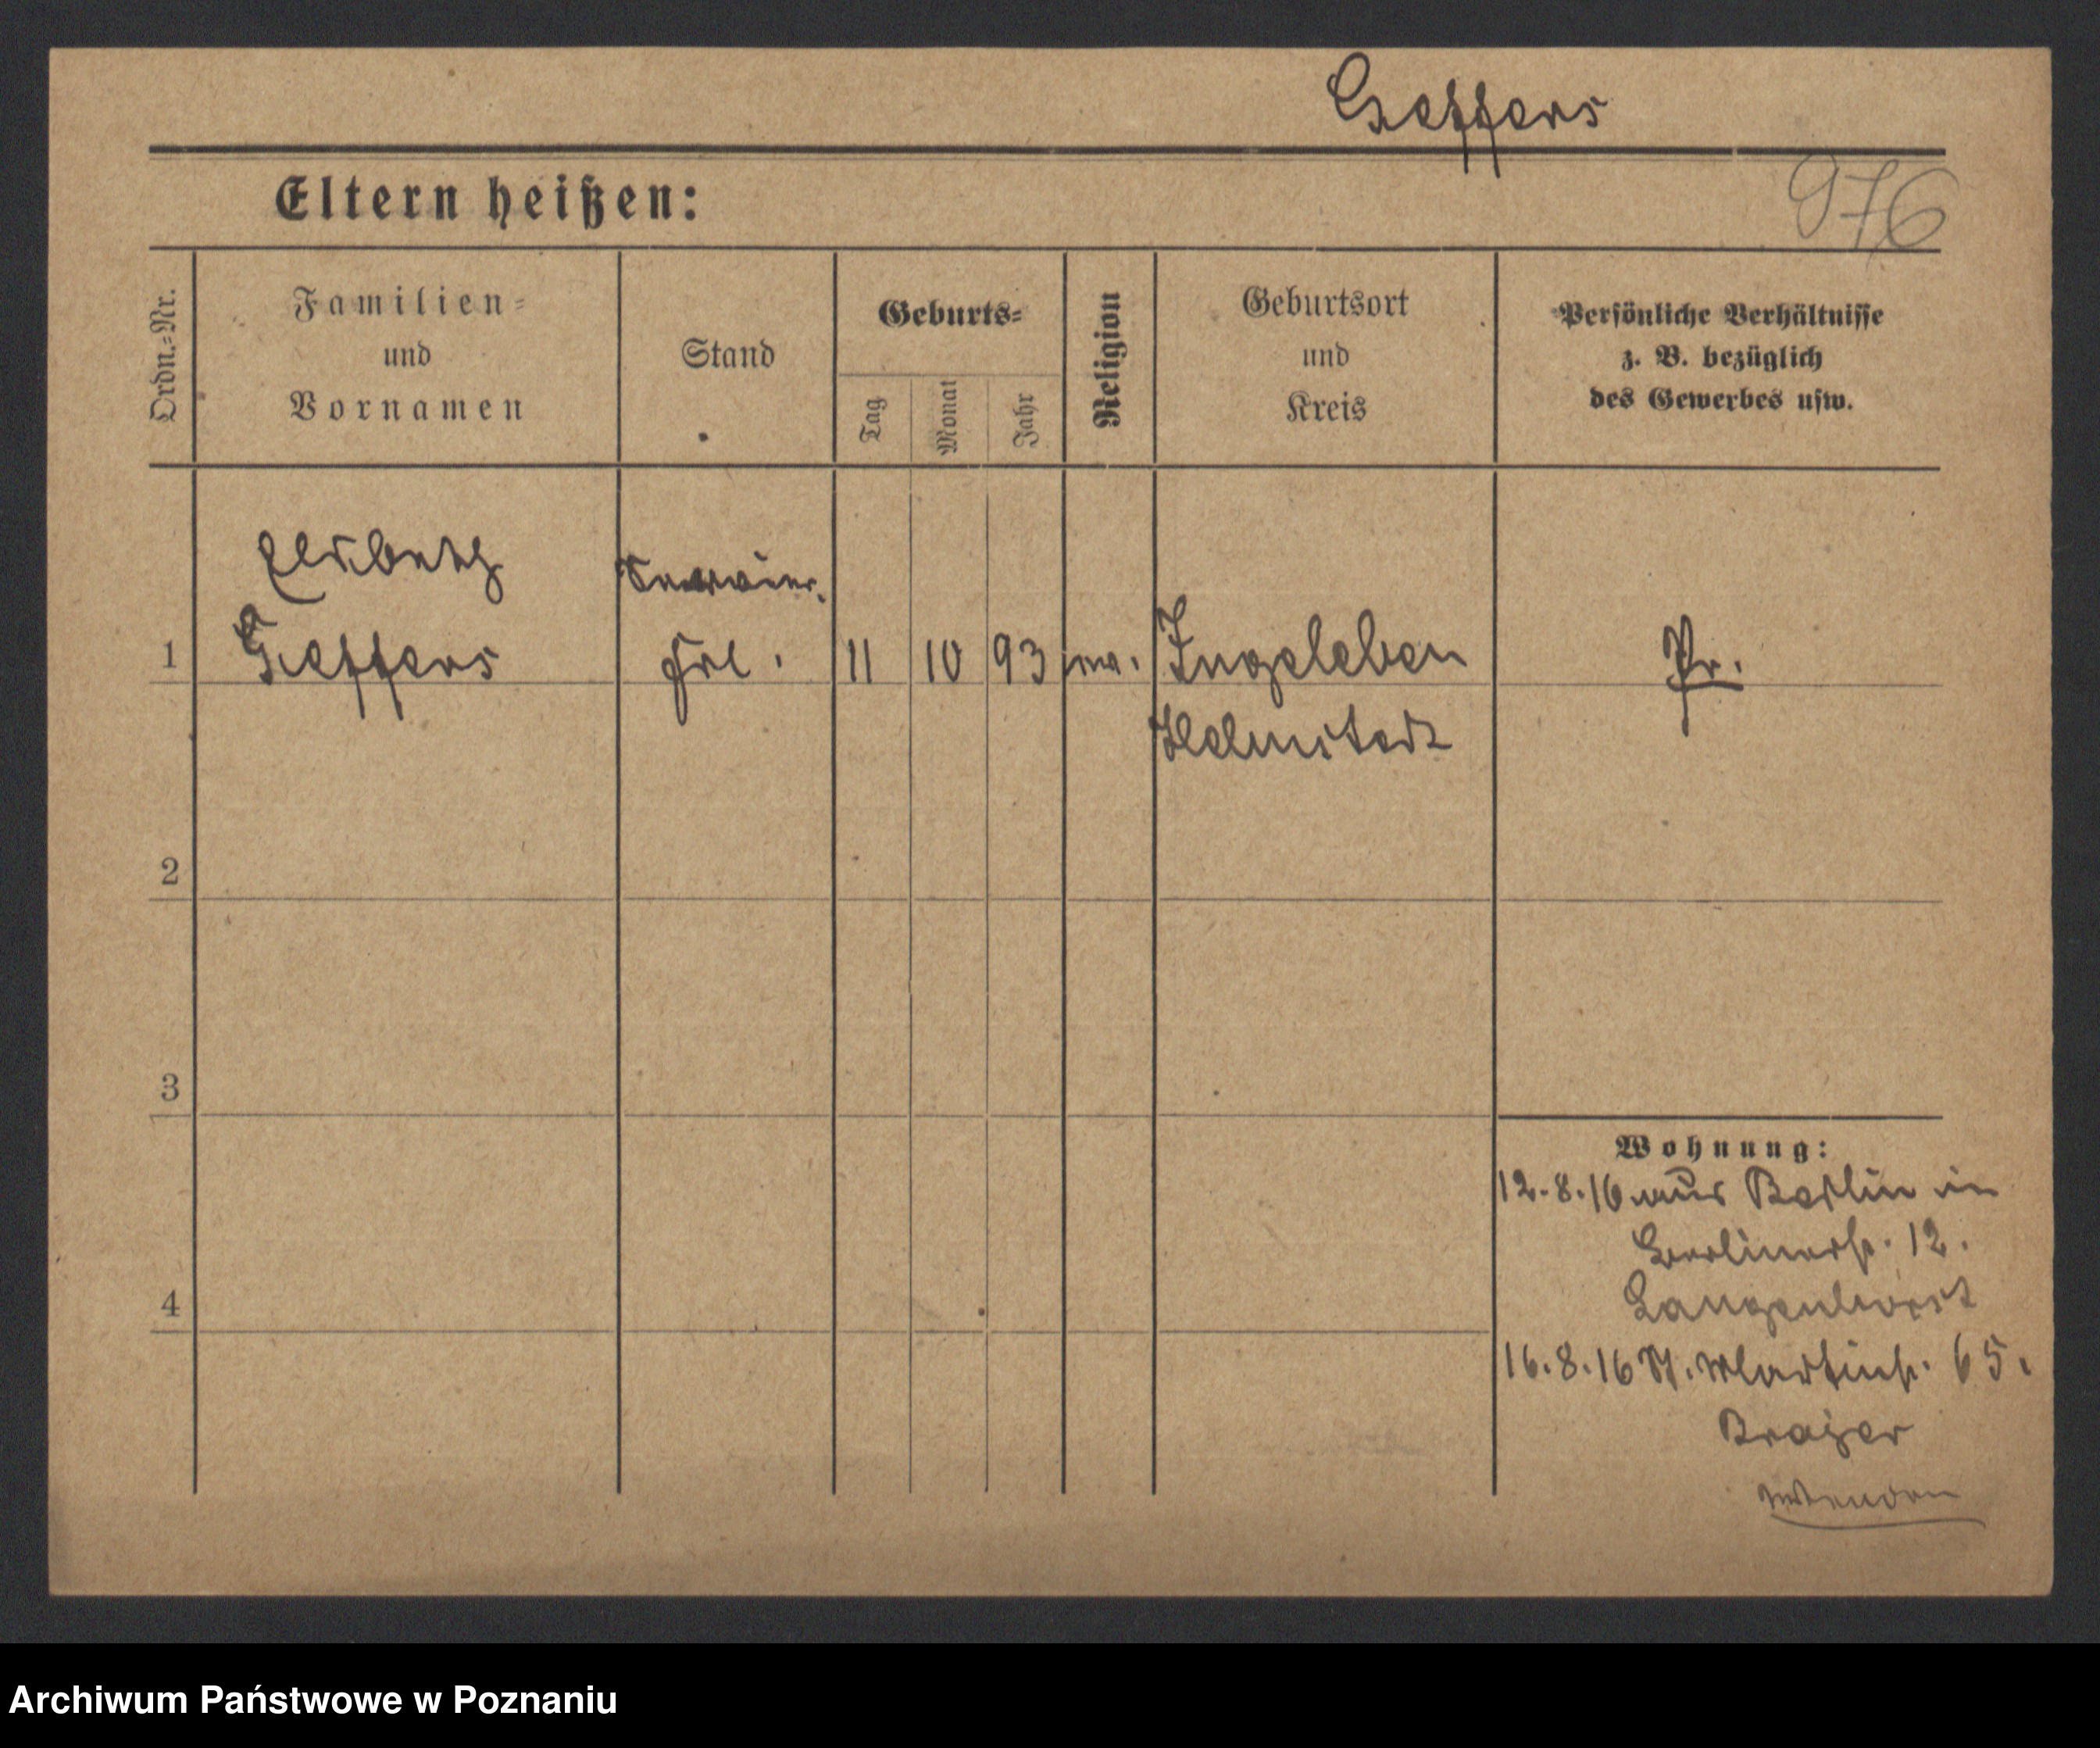 Geffers
976
Eltern heißen:
Ordn.=Nr.
Familien=
und
Vornamen
Stand
Geburts=
Tag
Monat
Jahr
Religion
Geburtsort
und
Kreis
Persönliche Verhältnisse
z. B. bezüglich
des Gewerbes usw.
Elisabeth
1 Geffers Frl. 11 10 93 Ingeleben Pr.
Helmstedt
2
3
Wohnung:
12.8.16 aus Berlin in
Berlinerstr. 12.
Langenhorst
4
16.8.16 St. Martinstr. 65.
wenden
Archiwum Państwowe w Poznaniu